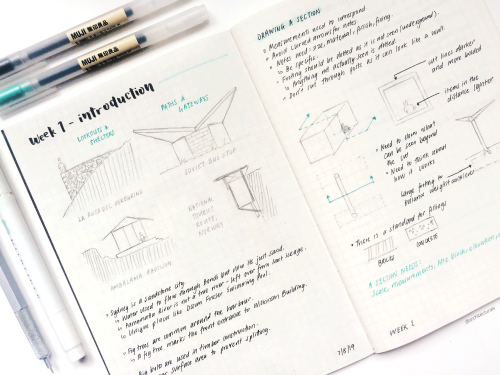 MUJI 無印良品
MUJI 無印良品
Week 1 - introduction
LOOKOUTS &
SHELTERS
PATHS &
GATEWAYS
SOVIET BUS STOP
NATIONAL
TOURIST
ROUTE,
NORWAY
PAVILION
• Sydney is a sandstone city
↳ Water used to flow through Bondi but now it's just sand.
↳ Parramatta River is not a true river - left over from last
↳ Unique places like Dawn Fraser Swimming Pool.
• Fig trees are common around the harbour
↳ A fig tree marks the front entrance to Wilkinson Building.
• Big bolts are used in timber construction.
surface area to prevent splitting.
7/8/19
DRAWING A SECTION
• Measurements need to correspond
• Avoid curved arrows for notes
• Notes need: size, material, finish, fixing.
↳ Be specific.
• Footing should be dotted as it is not seen (underground).
↳ Anything not actually seen is dotted.
• Don't cut through posts as it can look like a wall.
cut lines darker
and more bolded
items in the
distance lighter
• Need to show what
can be seen beyond
the cut
• Need to think about
how it
Large footing to
balance weight
• There is a standard for filling:
BRICKS
CONCRETE
A SECTION NEEDS:
Scale, measurements,
WEEK 1